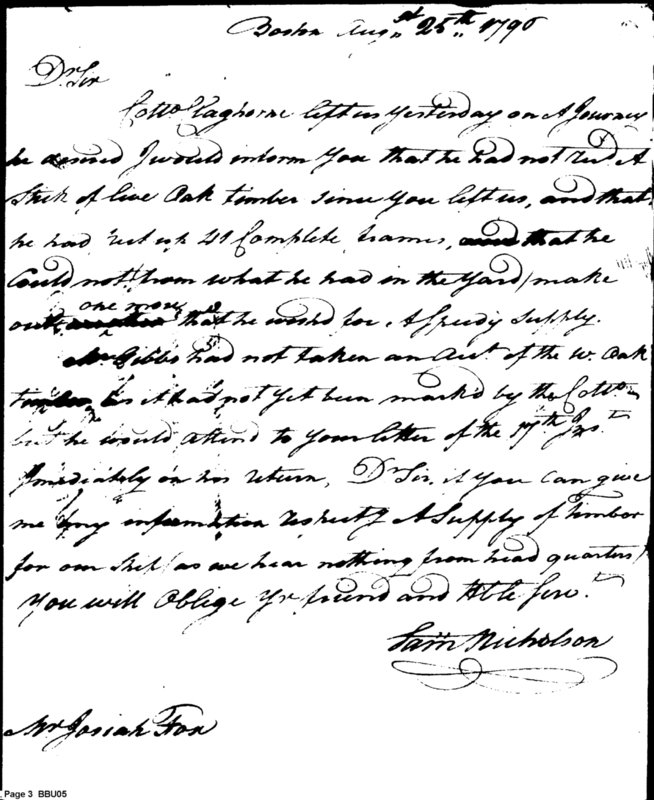 Boston Augst 25th 1796
Dr Sir
Collo Claghorne left us Yesterday on A Journey
he desired I would inform You that he had not Recd A
Stick of live Oak timber since You left us, and that
he had set up 41 Complete frames, and that he
Could not from what he had in the Yard make
out one more that he wish'd for A Speedy Supply.
Mr Gibbs had not taken an Acct of the W. Oak
timber as it had not Yet been mark'd by the Collo
but he would attend to Your letter of the 17th Inst
Immediately on his return, Dr Sir, if You Can give
me any information respectg A Supply of timber
for our Ship (as we hear nothing from head quarters)
You will Oblige Yr friend and Hble Servt
Sam Nicholson
Mr Josiah Fox
Page 3 BBU05